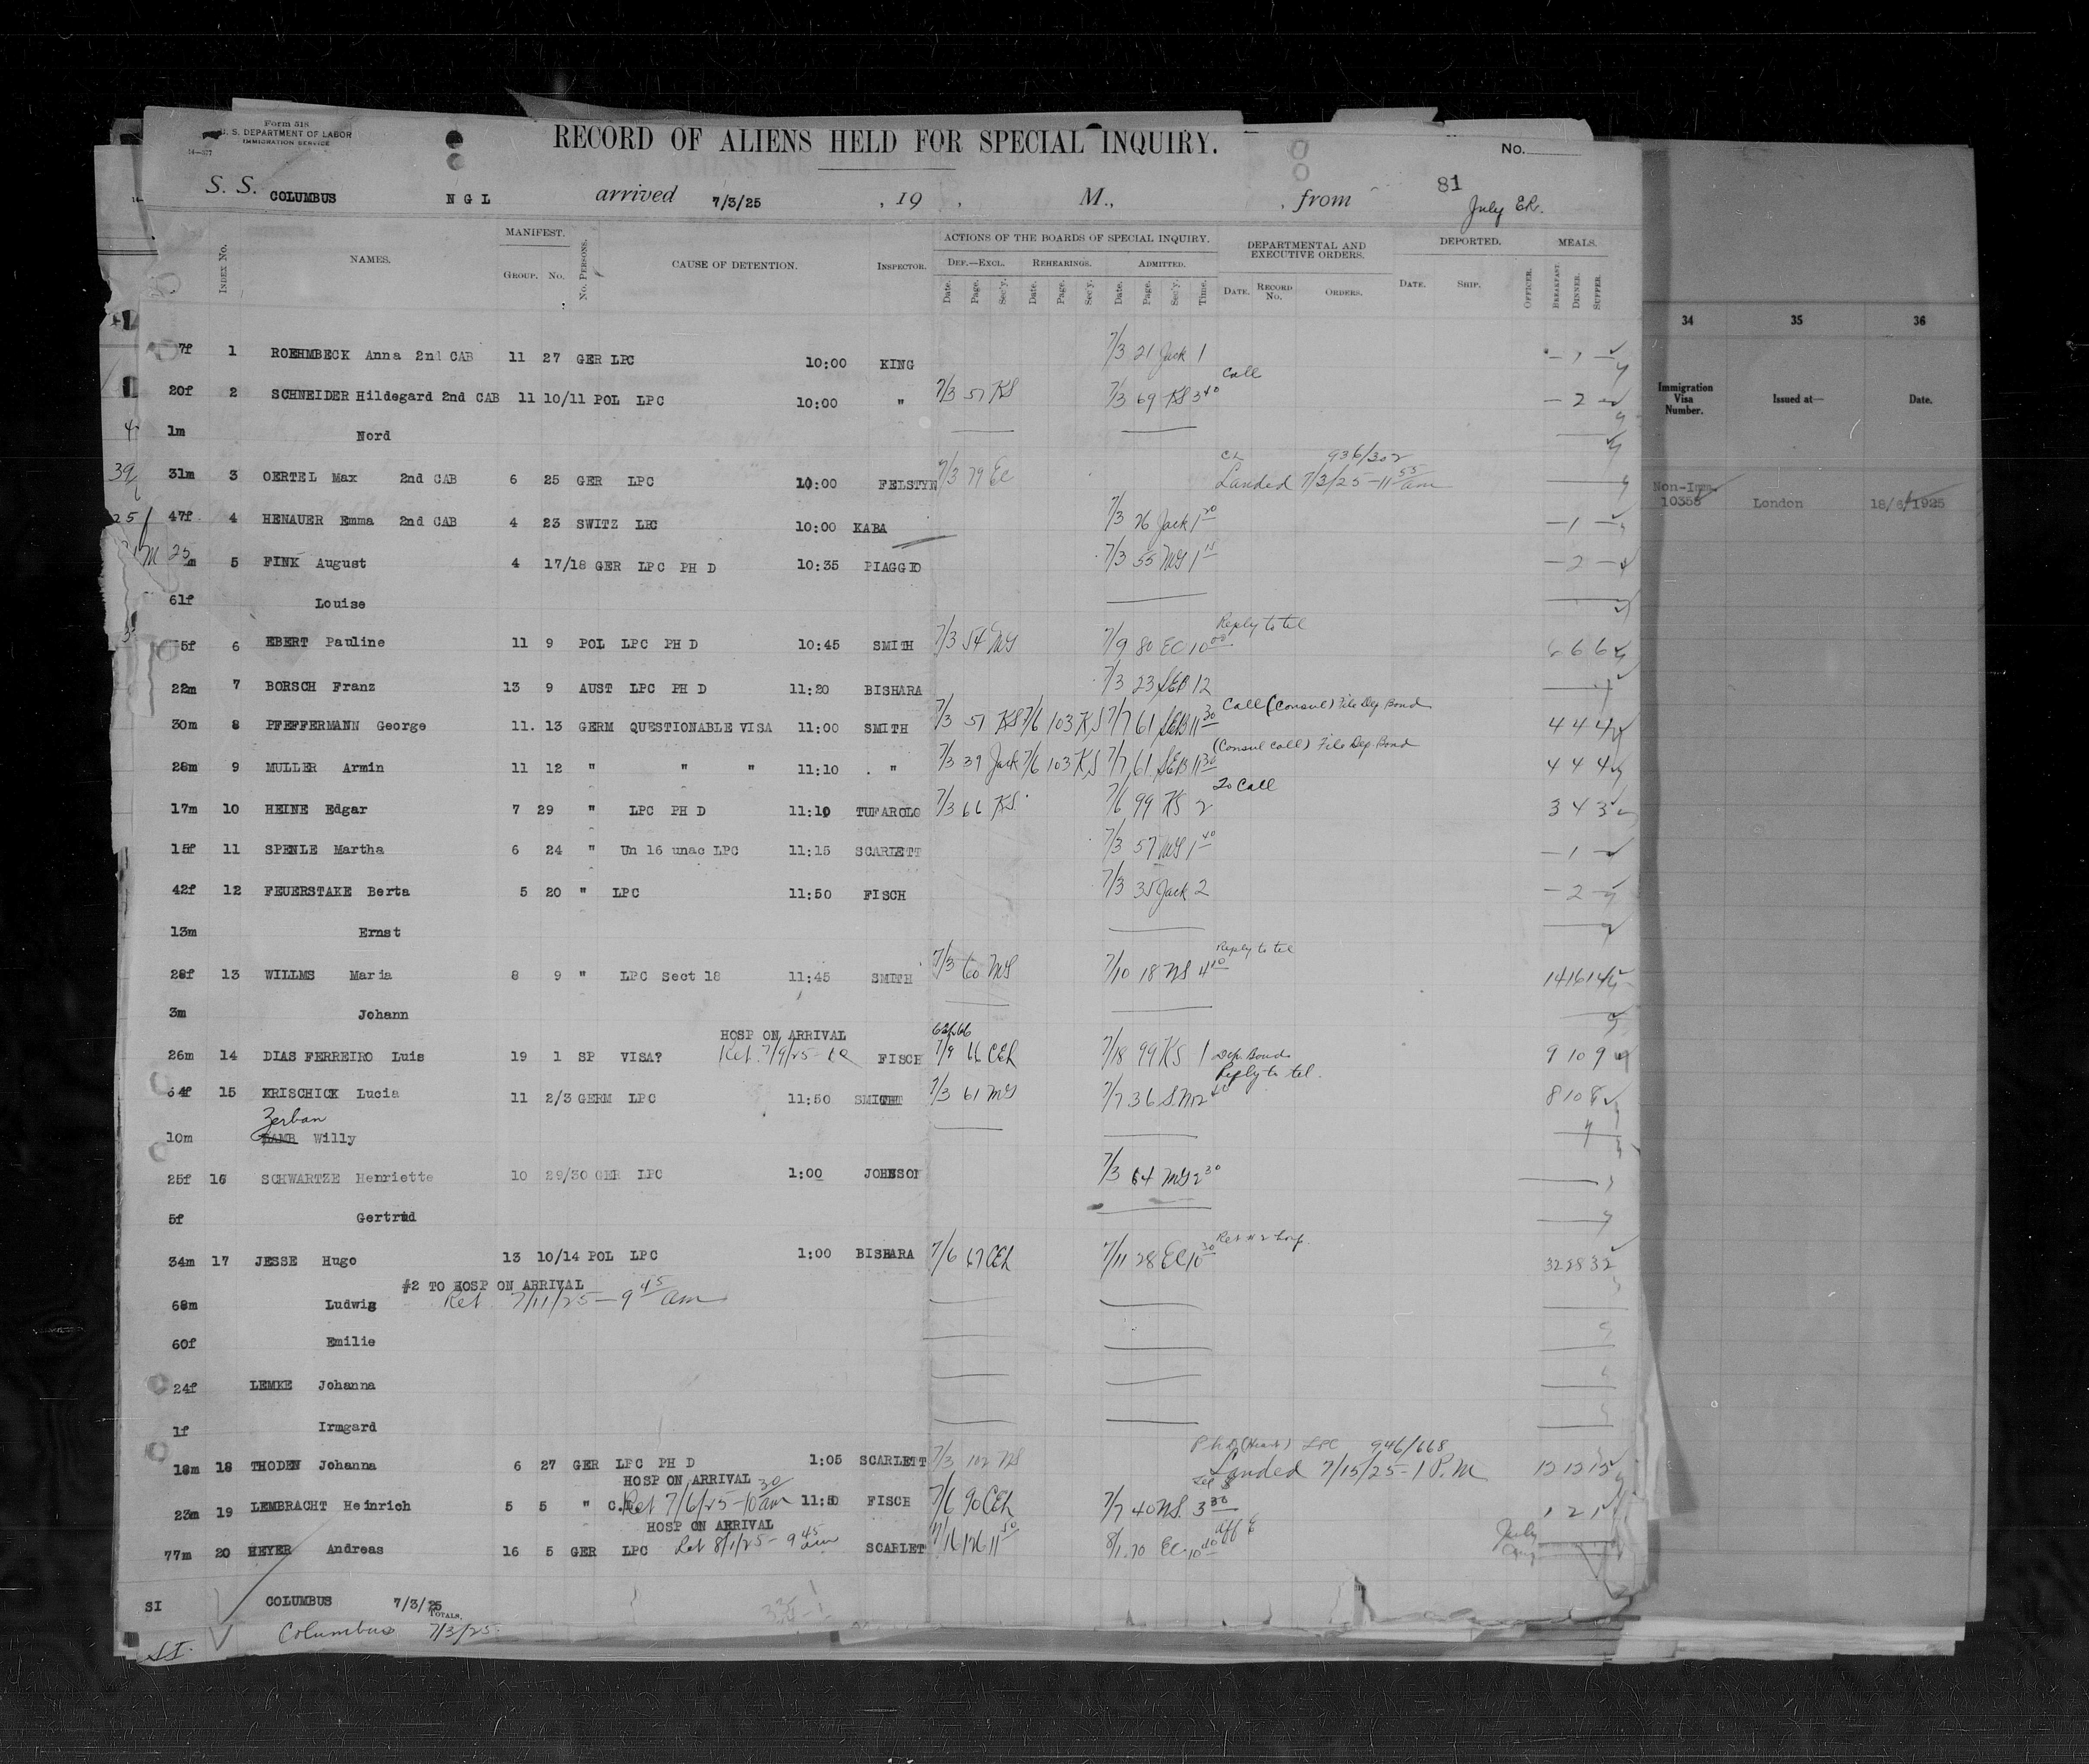 Form 518
U. S. DEPARTMENT OF LABOR
IMMIGRATION SERVICE
14—577
RECORD OF ALIENS HELD FOR SPECIAL INQUIRY.
No.
S. S. COLUMBUS N G L arrived 7/3/25 , 19 , M., , from 81
July ER.
INDEX No. NAMES. MANIFEST. GROUP. No. No. PERSONS. CAUSE OF DETENTION. INSPECTOR. ACTIONS OF THE BOARDS OF SPECIAL INQUIRY. DEPARTMENTAL AND EXECUTIVE ORDERS. DEPORTED. MEALS.
DEF.—EXCL. REHEARINGS. ADMITTED.
Date. Page. Sec'y. Date. Page. Sec'y. Date. Page. Sec'y. Time. DATE. RECORD No. ORDERS. DATE. SHIP. OFFICER. BREAKFAST. DINNER. SUPPER.
7f 1 ROEHMBECK Anna 2nd CAB 11 27 GER LPC 10:00 KING 7/3 21 Jack 1 — 1 —
Call
20f 2 SCHNEIDER Hildegard 2nd CAB 11 10/11 POL LPC 10:00 " 7/3 57 KS 7/3 69 KS 3 40 — 2 —
1m Nord
936/302
31m 3 OERTEL Max 2nd CAB 6 25 GER LPC 10:00 FELSTYN 7/3 79 EC Landed 7/3/25 - 11 55 am
47f 4 HENAUER Emma 2nd CAB 4 23 SWITZ LPC 10:00 KABA 7/3 76 Jack 1 20 — 1 —
m 5 FINK August 4 17/18 GER LPC PH D 10:35 PIAGGIO 7/3 55 MG 1 15 — 2 —
61f Louise
Reply to tel
5f 6 EBERT Pauline 11 9 POL LPC PH D 10:45 SMITH 7/3 54 MG 7/9 80 EC 10 00 6 6 6
22m 7 BORSCH Franz 13 9 AUST LPC PH D 11:20 BISHARA 7/3 23 SEB 12
Call (Consul) File Dep. Bond
30m 8 PFEFFERMANN George 11. 13 GERM QUESTIONABLE VISA 11:00 SMITH 7/3 57 KS 7/6 103 KS 7/7 61 SEB 11 30 4 4 4
(Consul call) File Dep. Bond
28m 9 MULLER Armin 11 12 " " " 11:10 " 7/3 39 Jack 7/6 103 KS 7/7 61 SEB 11 30 4 4 4
To Call
17m 10 HEINE Edgar 7 29 " LPC PH D 11:10 TUFAROLO 7/3 66 KS 7/6 99 KS 2 3 4 3
15f 11 SPENLE Martha 6 24 " Un 16 unac LPC 11:15 SCARLETT 7/3 57 MG 1 40 — 1 —
42f 12 FEUERSTAKE Berta 5 20 " LPC 11:50 FISCH 7/3 35 Jack 2 — 2 —
13m Ernst
Reply to tel
28f 13 WILLMS Maria 8 9 " LPC Sect 18 11:45 SMITH 7/3 60 MG 7/10 18 NS 4 10 14 16 14
3m Johann
HOSP ON ARRIVAL
26m 14 DIAS FERREIRO Luis 19 1 SP VISA? Ret. 7/9/25 FISCH 7/9 66 CEL 7/18 99 KS 1 Dep. Bond 9 10 9
Reply to tel.
64f 15 KRISCHICK Lucia 11 2/3 GERM LPC 11:50 SMITH 7/3 61 MG 7/7 36 8 10 8
Zerban
10m Willy
25f 16 SCHWARTZE Henriette 10 29/30 GER LPC 1:00 JOHNSON 7/3 64 MG 2 30
5f Gertrud
Ret #2 hosp.
34m 17 JESSE Hugo 13 10/14 POL LPC 1:00 BISHARA 7/6 67 CEL 7/11 28 EC 10 30 32 28 32
#2 TO HOSP ON ARRIVAL
68m Ludwig Ret. 7/11/25 — 9 45 am
60f Emilie
24f LEMKE Johanna
1f Irmgard
PhD (Heart) LPC 946/668
18m 18 THODEN Johanna 6 27 GER LPC PH D 1:05 SCARLETT 7/3 102 NS Landed 7/15/25 - 1 P.M 12 12 12
HOSP ON ARRIVAL
23m 19 LEMBRACHT Heinrich 5 5 " Ret 7/6/25 - 10 30 am 11:50 FISCH 7/6 90 CEL 7/7 40 NS. 3 30 1 2 1
HOSP ON ARRIVAL
77m 20 HEYER Andreas 16 5 GER LPC Ret 8/1/25 - 9 45 am SCARLET 8/1 70 EC 10 40 July
SI COLUMBUS 7/3/25
TOTALS.
SI. Columbus 7/3/25
34 35 36
Immigration Visa Number. Issued at— Date.
Non-Imm.
10358 London 18/6/1925